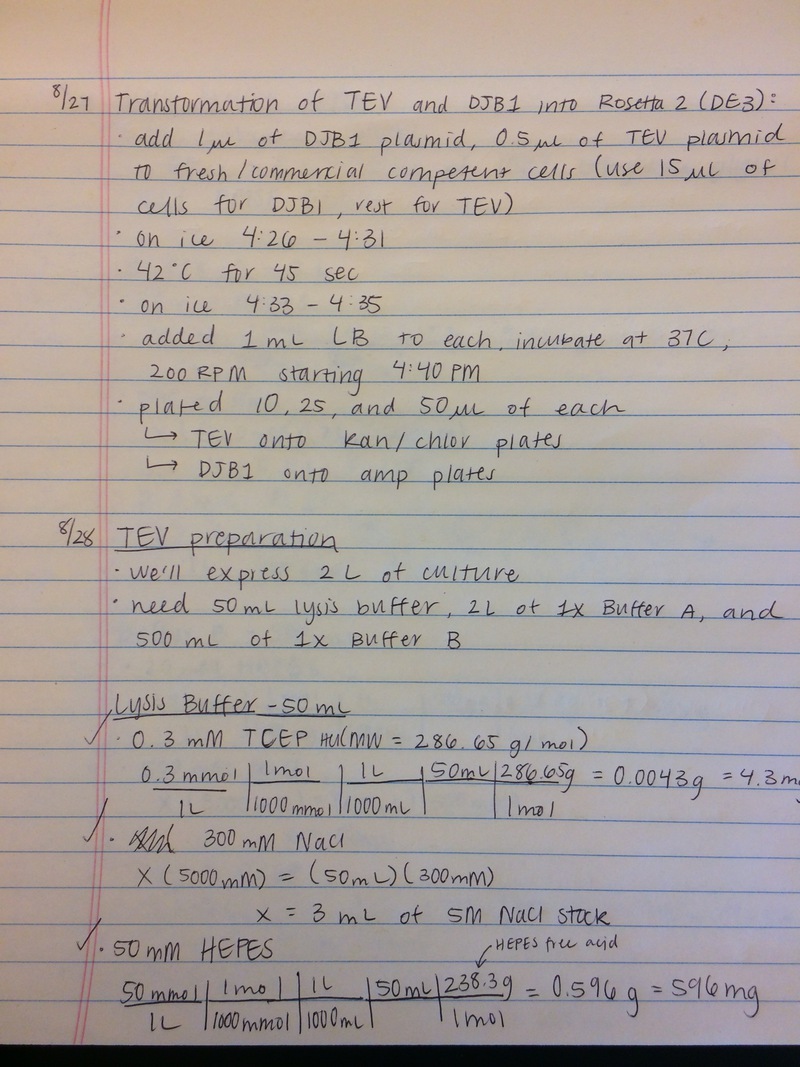 8/27 Transformation of TEV and DJB1 into Rosetta 2 (DE3):
· add 1μL of DJB1 plasmid, 0.5μL of TEV plasmid
to fresh/commercial competent cells (use 15μL of
cells for DJB1, rest for TEV)
· on ice 4:26 – 4:31
· 42°C for 45 sec
· on ice 4:33 – 4:35
· added 1mL LB to each, incubate at 37C,
200 RPM starting 4:40 PM
· plated 10, 25, and 50μL of each
↳ TEV onto kan/chlor plates
↳ DJB1 onto amp plates
8/28 TEV preparation
· we'll express 2 L of culture
· need 50mL lysis buffer, 2L of 1x Buffer A, and
500 mL of 1x Buffer B
Lysis Buffer - 50 mL
✓ · 0.3 mM TCEP HCl (MW = 286.65 g/mol)
0.3 mmol | 1mol | 1L | 50mL | 286.65g = 0.0043g = 4.3m
1L | 1000 mmol | 1000 mL | | 1mol
✓ · 300 mM NaCl
x (5000mM) = (50mL)(300mM)
x = 3 mL of 5M NaCl stock
✓ · 50 mM HEPES
HEPES free acid
50 mmol | 1mol | 1L | 50mL | 238.3g = 0.596g = 596mg
1L | 1000mmol | 1000mL | | 1mol